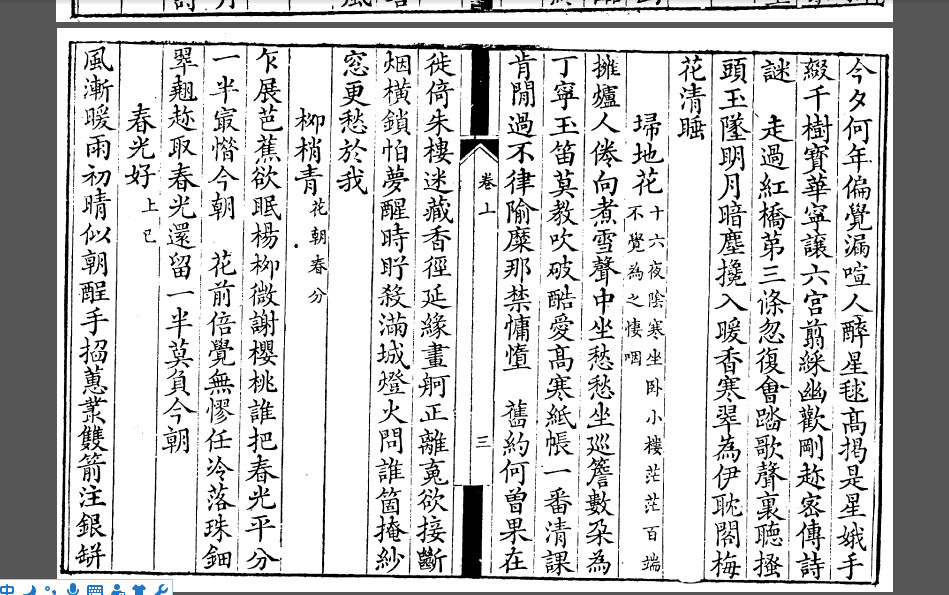 今夕何年偏覺漏喧人醉星毬髙揭是星娥手
綴千樹寶華寧讓六宮翦綵幽歡剛趂密傳詩
謎　走過紅橋第三條忽復會踏歌聲裏聽搔
頭玉墜明月暗塵攙入暖香寒翠為伊耽閣梅
花清睡
埽地花十六夜陰寒坐卧小樓茫茫百端
不覺為之悽咽
擁爐人倦向煮雪聲中坐愁愁坐廵簷數朶為
丁寧玉笛莫教吹破酷愛髙寒紙帳一番清課
肯閒過不律隃糜那禁慵惰　舊約何曾果在
卷上
三
徙倚朱樓迷藏香徑延緣畫舸正離䰟欲接斷
烟橫鎖怕夢醒時盱殺滿城燈火問誰箇掩紗
窓更愁於我
栁梢青花朝春分
乍展芭蕉欲眠楊栁微謝櫻桃誰把春光平分
一半寂憯今朝　花前倍覺無憀任冷落珠鈿
翠翹趂取春光還留一半莫負今朝
春光好上巳
風漸暖雨初晴似朝酲手搯蕙叢雙箭注銀缾
中